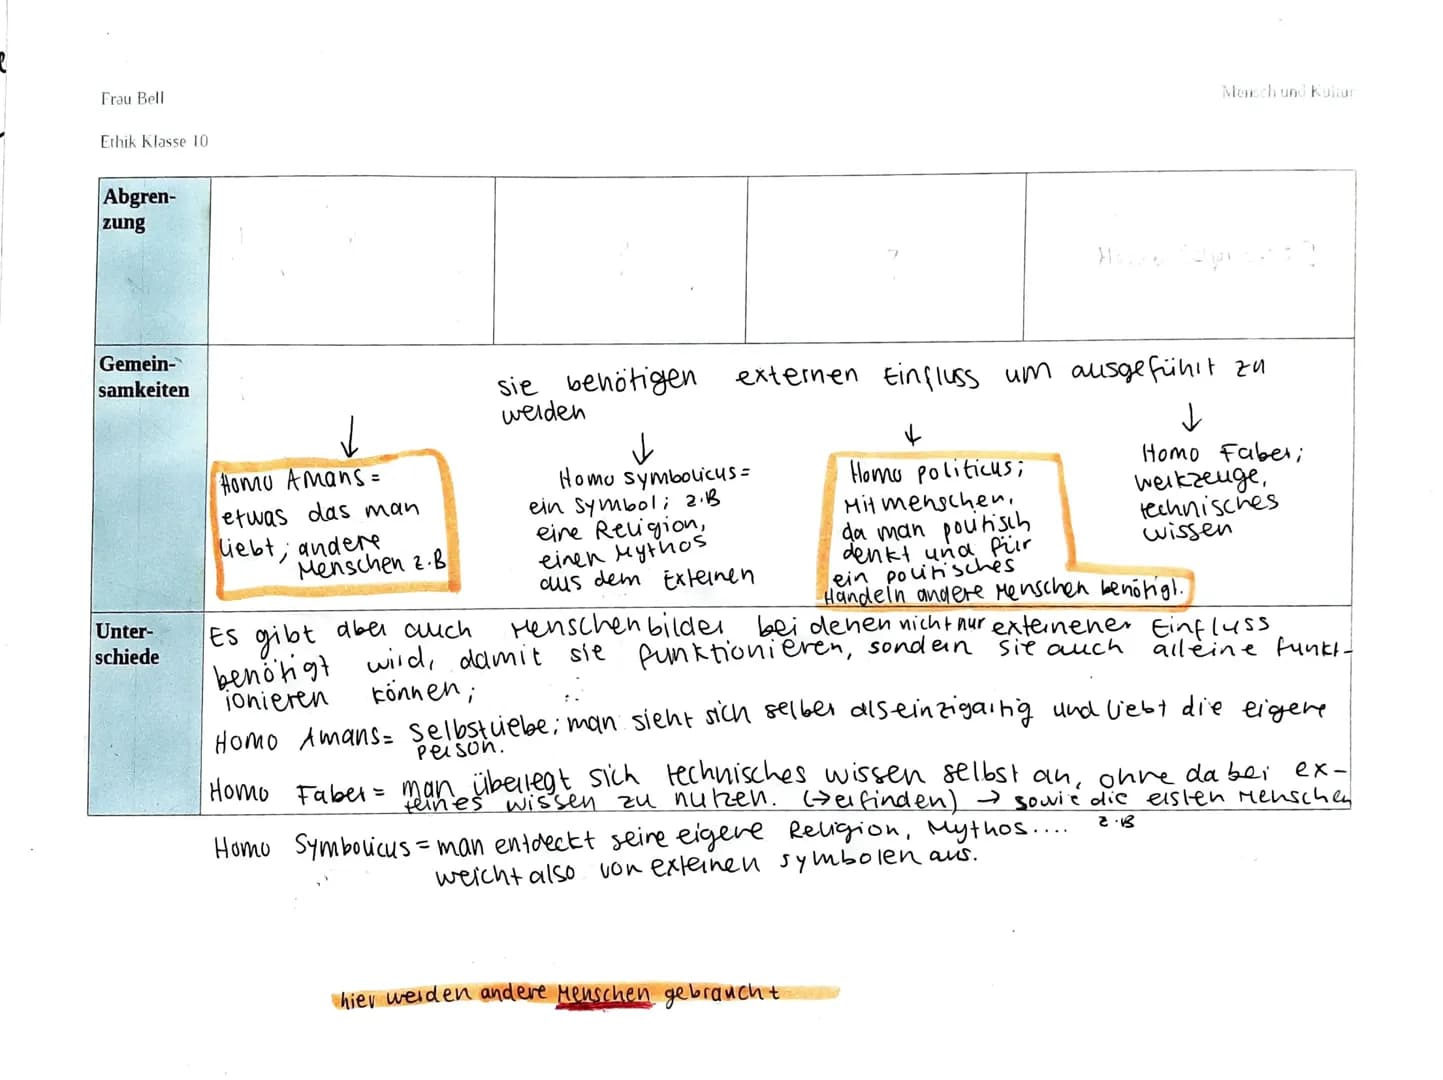 Frau Bell
Mensch und Kultur
Ethik Klasse 10
Abgren-
zung
Gemein-
samkeiten
sie benötigen externen Einfluss um ausgeführt zu
werden
Homo Amans =
etwas das man
liebt; andere
Menschen z.B
Homo Symbolicus =
ein Symbol; z.B
eine Religion,
einen Mythos
aus dem Externen
Homo politicus;
Mitmenschen,
da man politisch
denkt und für
ein politisches
Handeln andere Menschen benötigt.
Homo Faber;
werkzeuge,
technisches
wissen
Unter-
schiede
Es gibt aber auch Menschenbilder bei denen nicht nur externener Einfluss
benötigt wird, damit sie funktionieren, sondern sie auch alleine funkt-
ionieren können;
Homo Amans = Selbstliebe; man sieht sich selber als einzigartig und liebt die eigene
person.
Homo Faber = man überlegt sich technisches wissen selbst an, ohne dabei ex-
ternes wissen zu nutzen. (→ erfinden) → sowie die ersten Menschen
z.B
Homo Symbolicus = man entdeckt seine eigene Religion, Mythos....
weicht also von externen symbolen aus.
hier werden andere Menschen gebraucht